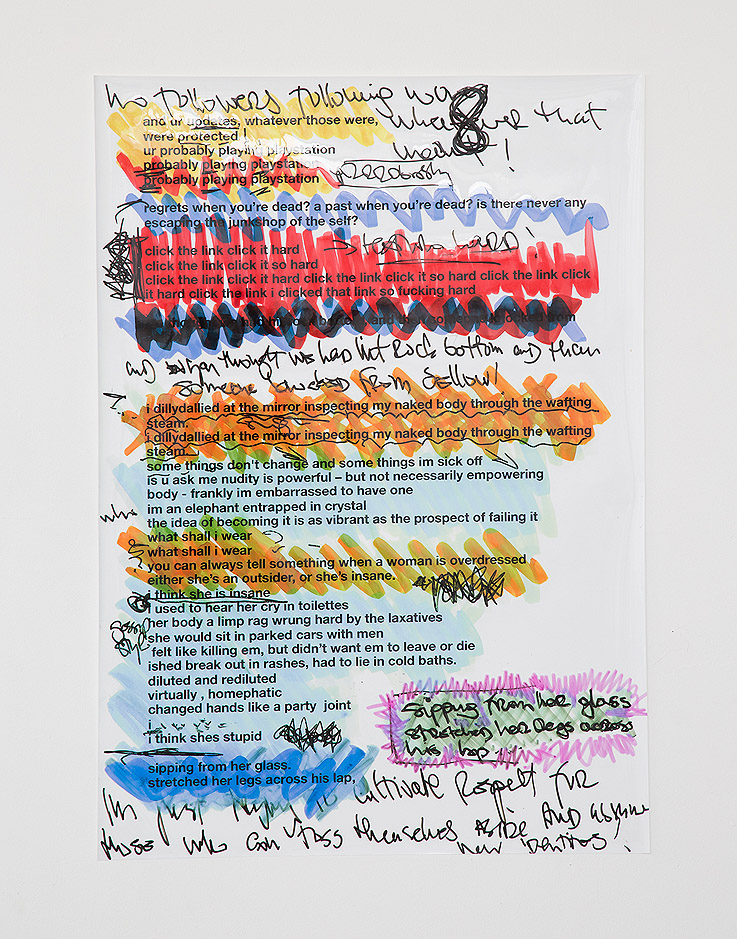 no followers following
and ur updates, whatever those were, whatever that
were protected! meant!
ur probably playing playstation
probably playing playstation
probably playing playstation
regrets when you're dead? a past when you're dead? is there never any
escaping the junkshop of the self?
click the link click it hard
click the link click it so hard
click the link click it hard click the link click it so hard click the link click
it hard click the link i clicked that link so fucking hard
and thought we had hit Rock bottom and then
someone knocked from bellow!
i dillydallied at the mirror inspecting my naked body through the wafting
steam.
i dillydallied at the mirror inspecting my naked body through the wafting
steam.
some things don't change and some things im sick off
is u ask me nudity is powerful – but not necessarily empowering
body - frankly im embarrassed to have one
im an elephant entrapped in crystal
the idea of becoming it is as vibrant as the prospect of failing it
what shall i wear
what shall i wear
you can always tell something when a woman is overdressed
either she's an outsider, or she's insane.
i think she is insane
i used to hear her cry in toilettes
her body a limp rag wrung hard by the laxatives
she would sit in parked cars with men
felt like killing em, but didn't want em to leave or die
ished break out in rashes, had to lie in cold baths.
diluted and rediluted
virtually , homephatic
changed hands like a party joint
i
i think shes stupid
sipping from her glass
stretched her legs across
his lap
sipping from her glass.
stretched her legs across his lap,
Im just trying to cultivate Respect for
those who can toss themselves aside AND assume
new identities.